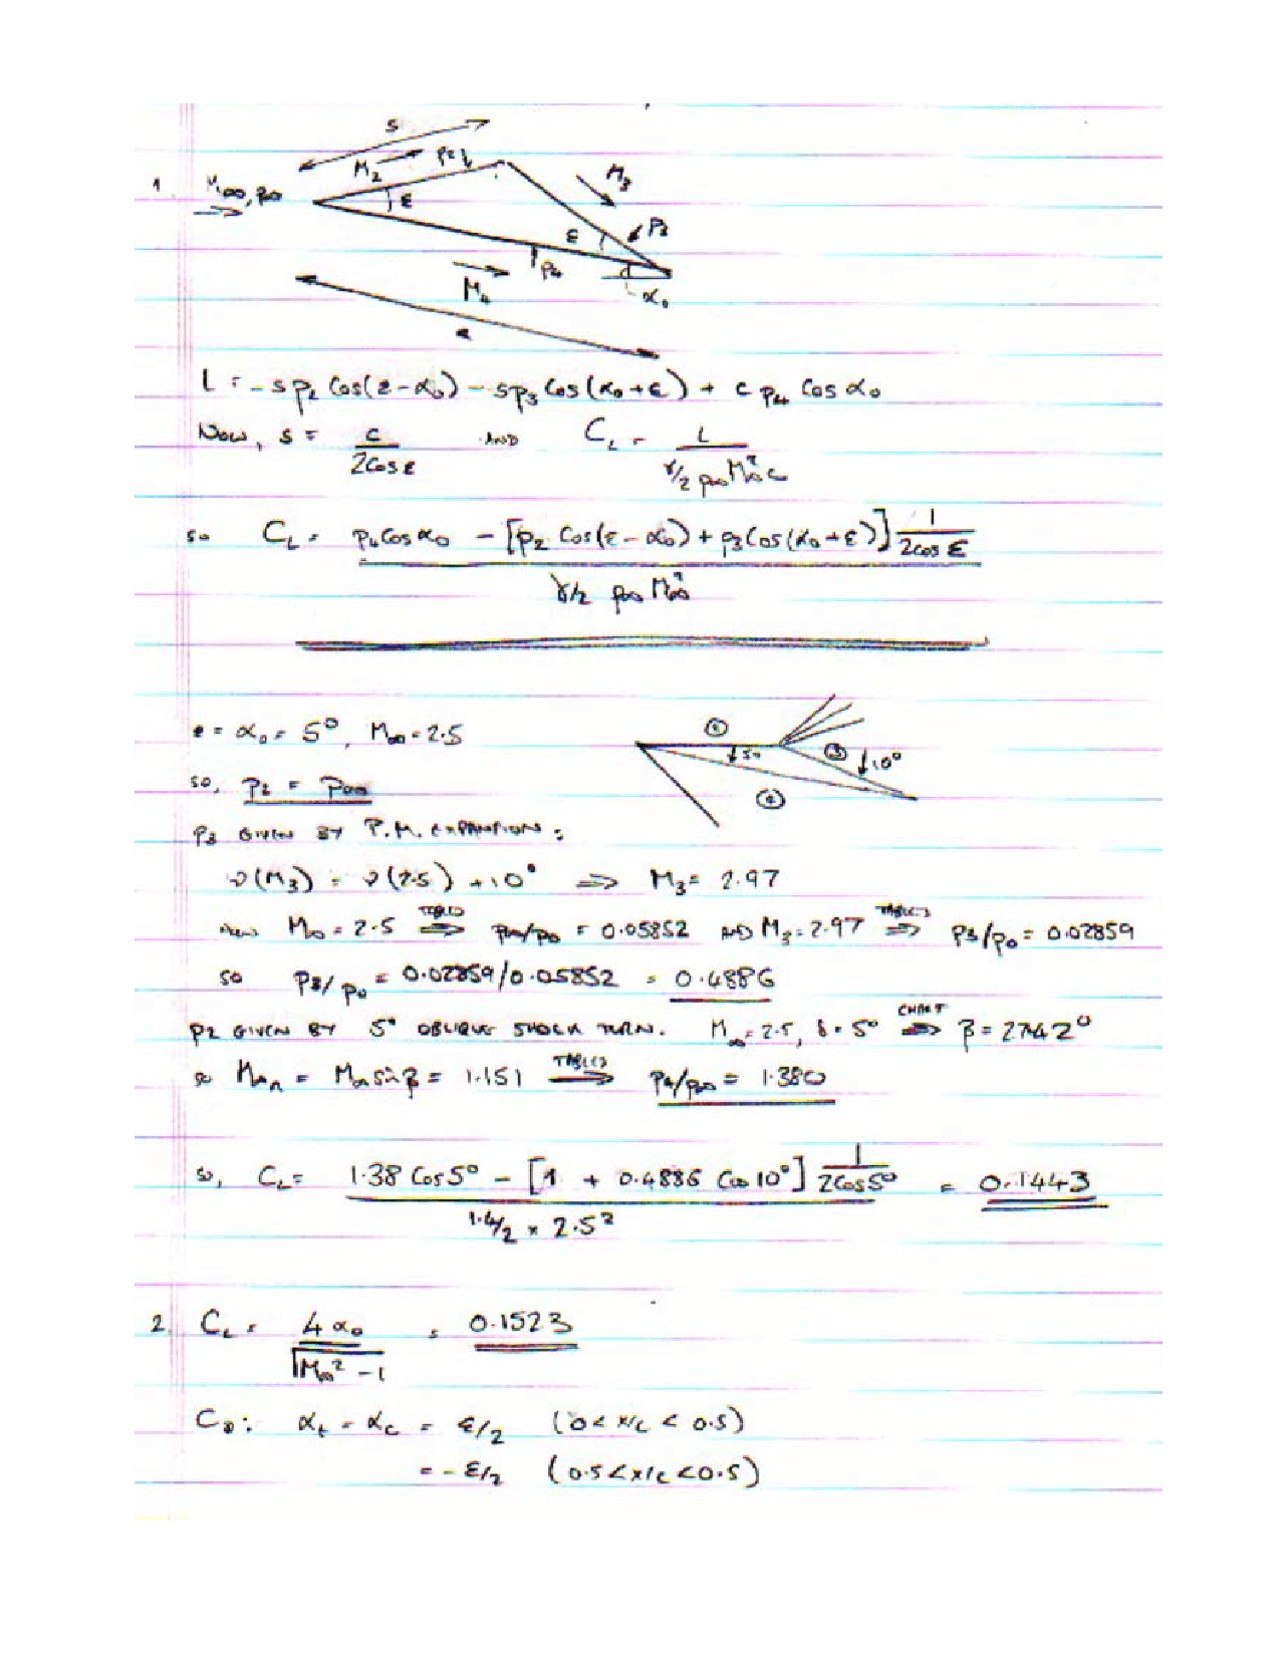 s
M₂ p₂ M₃
1. M∞, p∞ ε p₃
ε
p₄
M₄ α₀
c
L = -s p₂ Cos(ε-α₀) - s p₃ Cos(α₀+ε) + c p₄ Cos α₀
Now, s = c / 2Cos ε AND C_L = L / γ/2 p∞ M∞² c
so C_L = p₄ Cos α₀ - [p₂ Cos(ε-α₀) + p₃ Cos(α₀+ε)] 1 / 2cos ε
γ/2 p∞ M∞²
ε = α₀ = 5°, M∞ = 2.5
② ↓5° ③ ↓10°
④
so, p₂ = p∞
P₃ GIVEN BY P.M. EXPANSION:
ν(M₃) = ν(2.5) + 10° ⇒ M₃ = 2.97
NOW M∞ = 2.5 TABLES ⇒ p∞/p₀ = 0.05852 AND M₃ = 2.97 TABLES ⇒ p₃/p₀ = 0.02859
so p₃/p₀ = 0.02859/0.05852 = 0.4886
P₂ GIVEN BY 5° OBLIQUE SHOCK TURN. M∞ = 2.5, δ = 5° CHART ⇒ β = 27.42°
so M∞n = M∞ sin β = 1.151 TABLES ⇒ p₄/p∞ = 1.380
so, C_L = 1.38 Cos 5° - [1 + 0.4886 Cos 10°] 1 / 2Cos 5° = 0.1443
1.4/2 × 2.5²
2. C_L = 4 α₀ / √M∞² - 1 = 0.1523
C_D: α_t = α_c = ε/2 (0 < x/c < 0.5)
= -ε/2 (0.5 < x/c < 0.5)